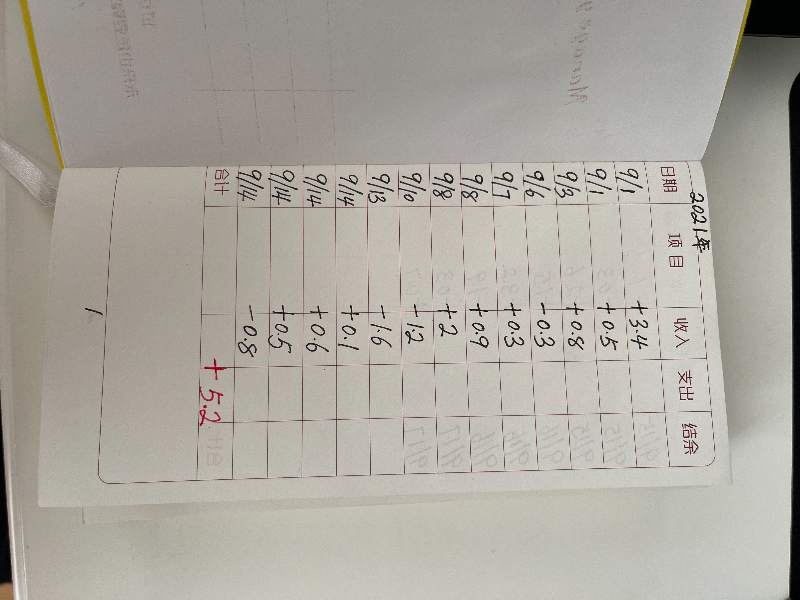 2021年
日期 项目 收入 支出 结余
9/1 +3.4
9/1 +0.5
9/3 +0.8
9/6 -0.3
9/7 +0.3
9/8 +0.9
9/8 +2
9/10 -1.2
9/13 -1.6
9/14 +0.1
9/14 +0.6
9/14 +0.5
9/14 -0.8
合计 +5.2
1